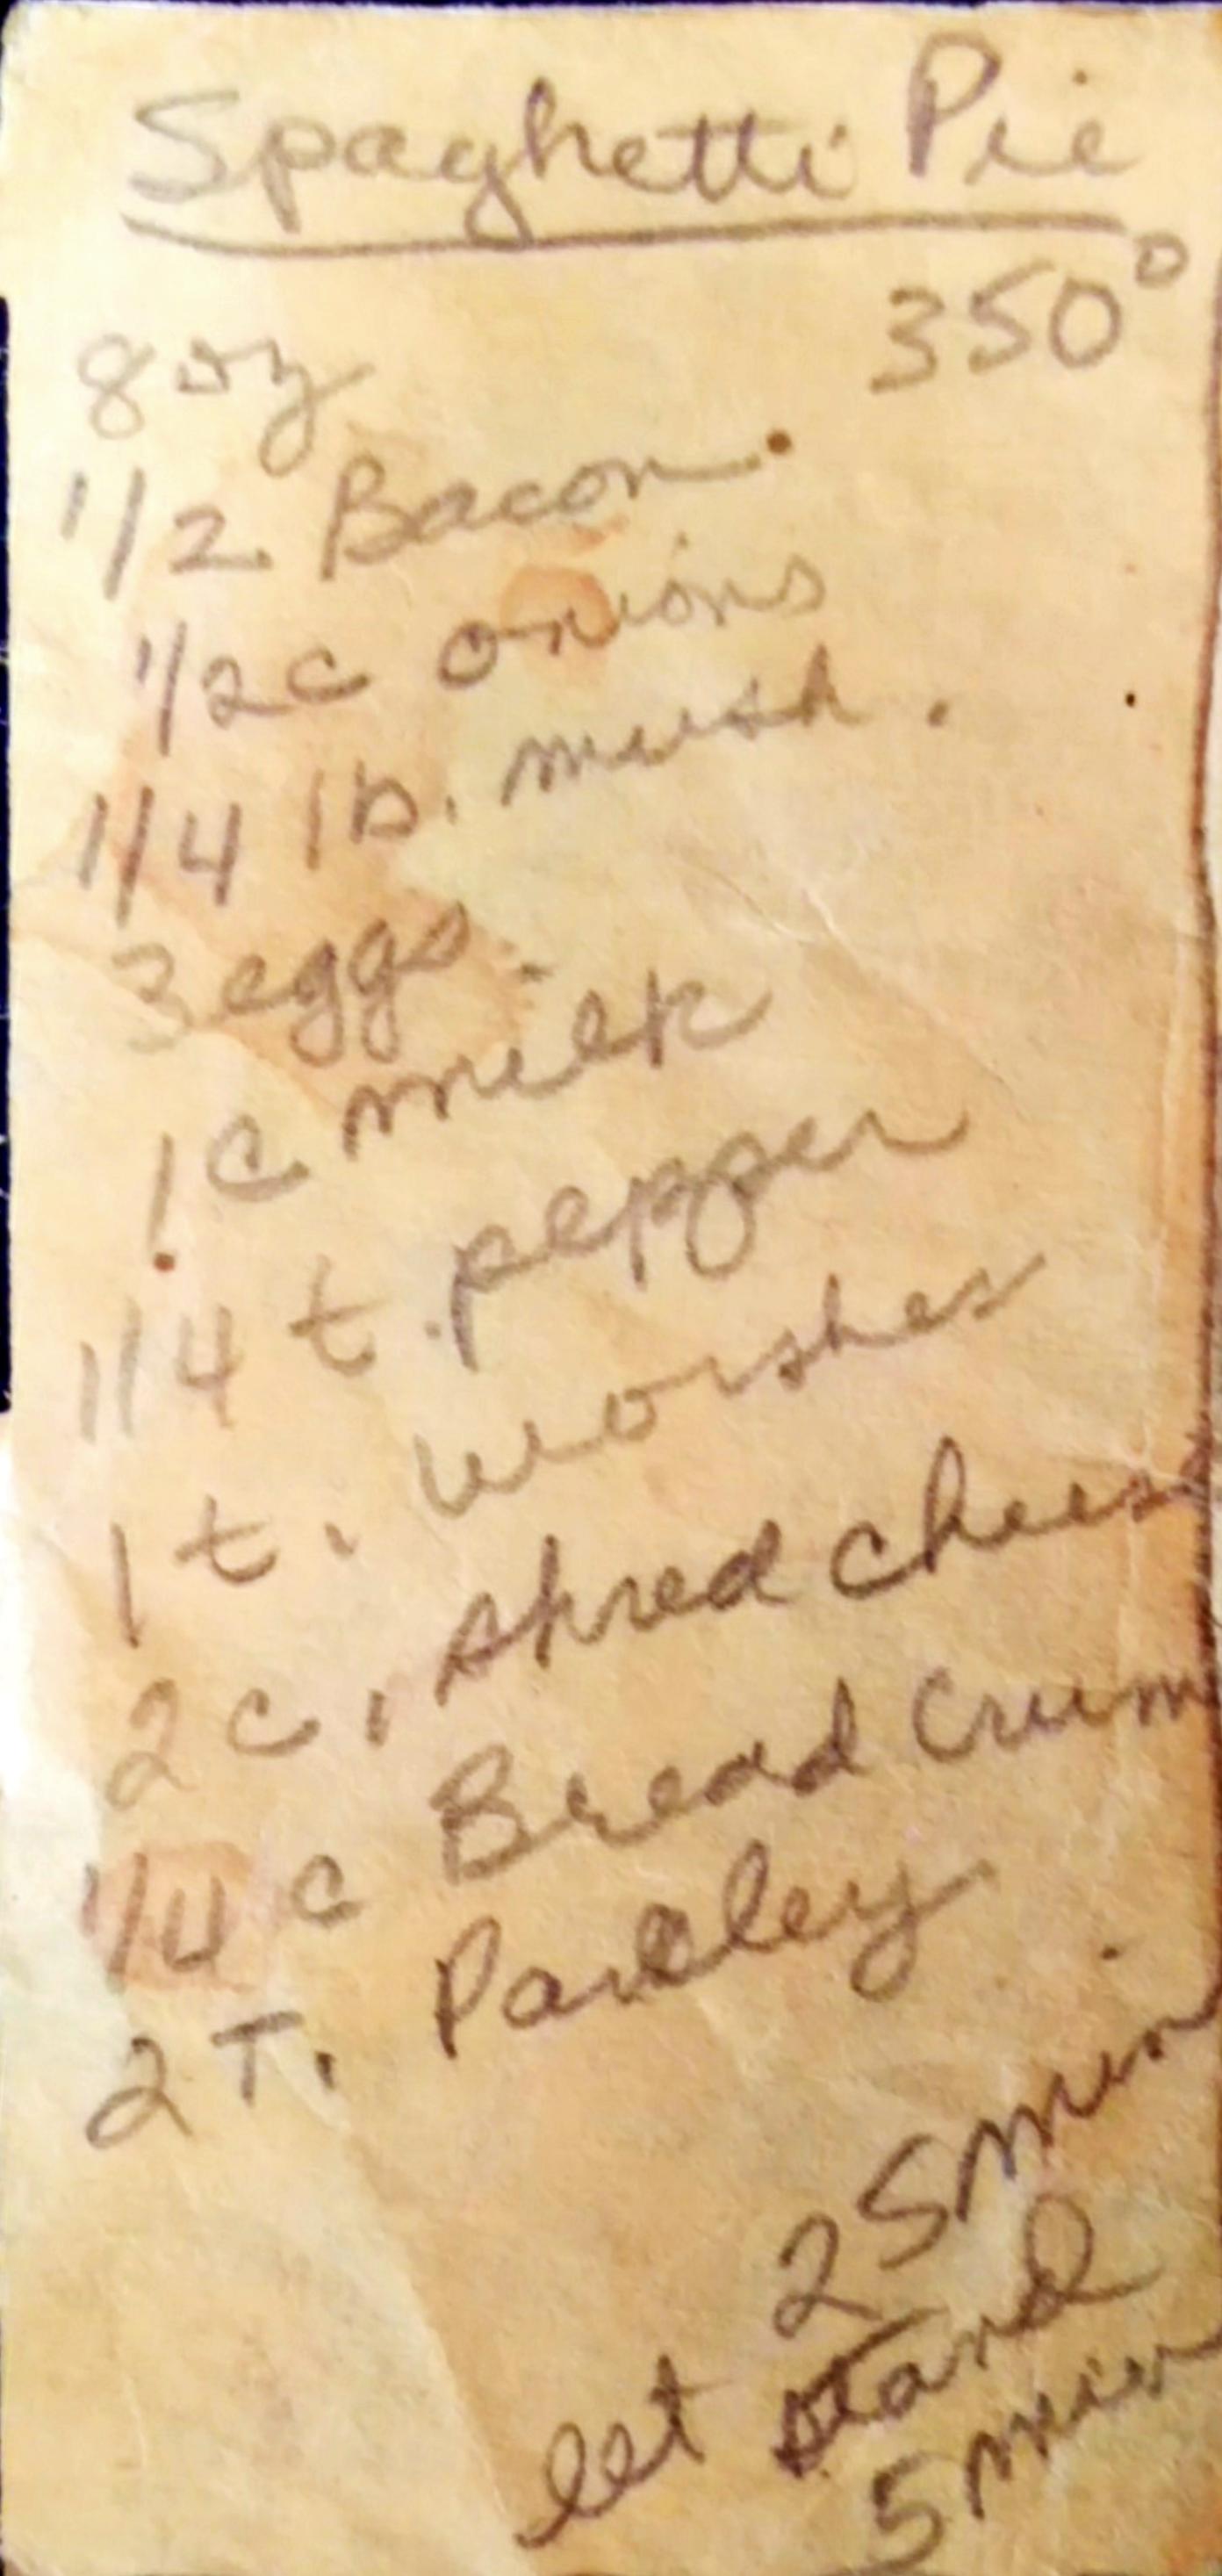 Spaghetti Pie
350°
8 oz
1/2 Bacon.
1/2 c onions
1/4 lb. mush.
3 eggs.
1 c milk
1/4 t. pepper
1 t. worshes
2 c. shred chees
1/4 c Bread Crum
2 T. Parsley
25 min
let stand
5 min